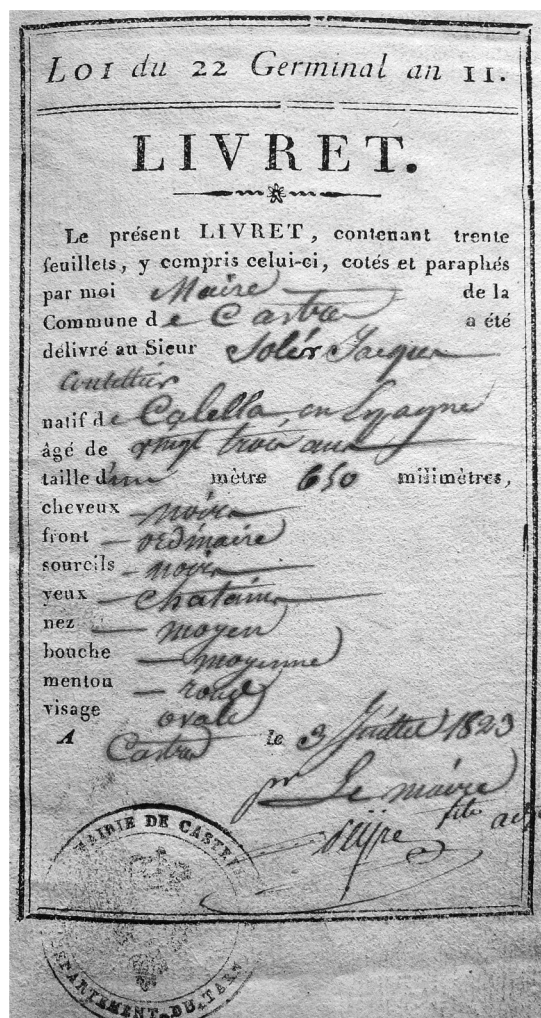 Loi du 22 Germinal an 11.
LIVRET.
Le présent LIVRET, contenant trente
feuillets, y compris celui-ci, cotés et paraphés
par moi Maire de la
Commune de Castres a été
délivré au Sieur Solér Jacques
natif de Calella en Espagne
âgé de vingt trois ans
taille d'un mètre 650 milimètres,
cheveux noirs
front ordinaire
sourcils noirs
yeux chatains
nez moyen
bouche moyenne
menton rond
visage ovale
A Castres le 3 Juillet 1823
pr Le maire
MAIRIE DE CASTRES
DÉPARTEMENT DU TARN